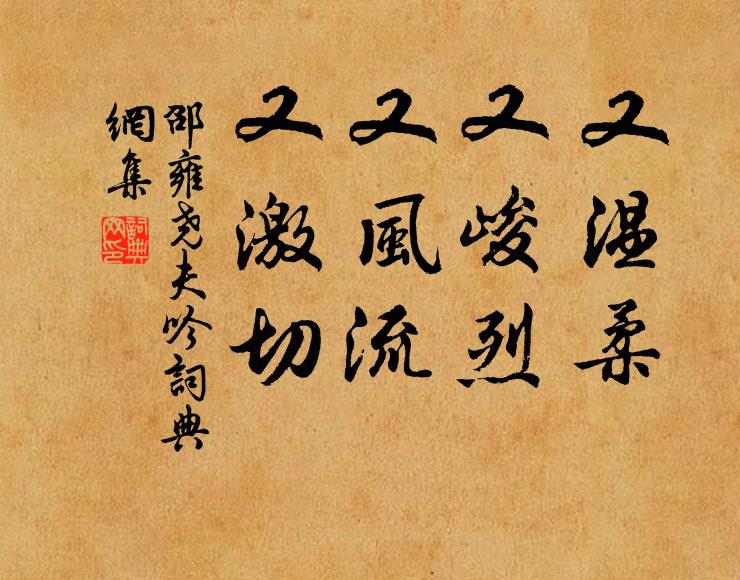 又温柔
又峻烈
又風流
又激切
邵雍尧夫吟詞典
網集
詞典
网印